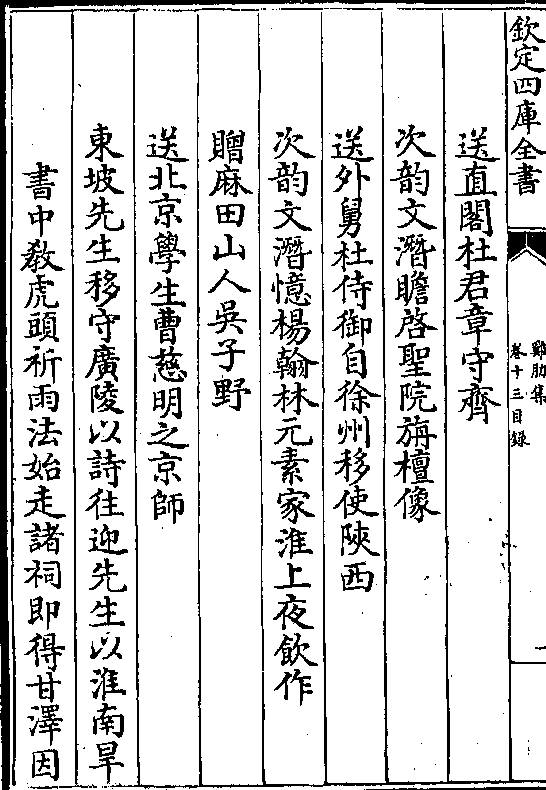 欽定四庫全書
雞肋集
卷十三目録
一
送直閣杜君章守齊
次韵文潛瞻啓聖院旃檀像
送外舅杜侍御自徐州移使陜西
次韵文潛憶楊翰林元素家淮上夜飲作
贈麻田山人吳子野
送北京學生曹慈明之京師
東坡先生移守廣陵以詩往迎先生以淮南旱
書中教虎頭祈雨法始走諸祠即得甘澤因